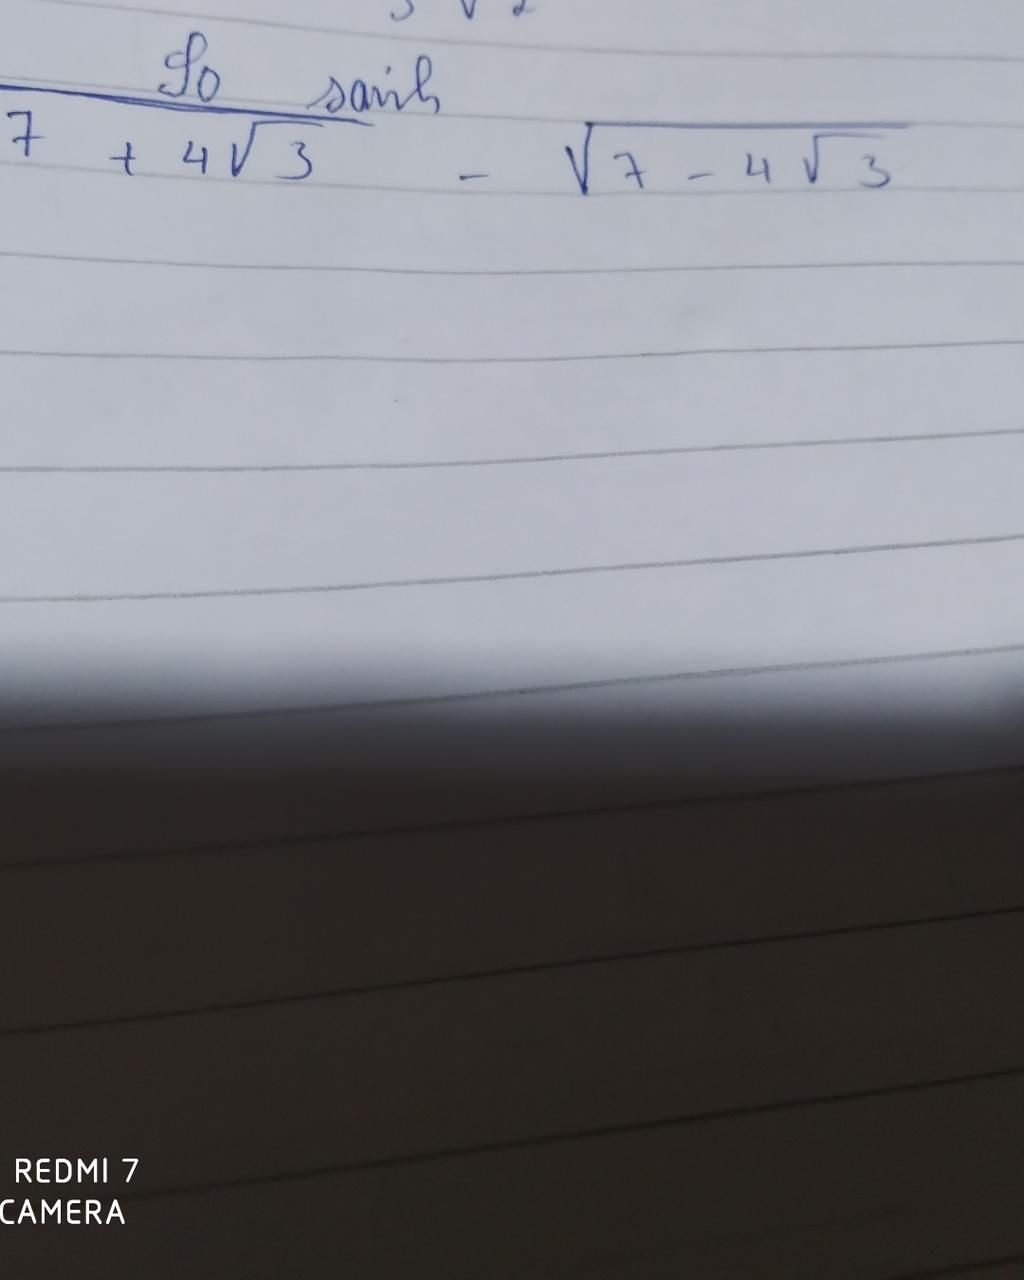 So sánh
7 + 4√3 - √7 - 4√3
REDMI 7
CAMERA